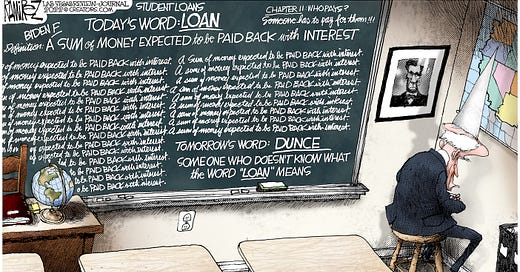 LAS VEGAS REVIEW-JOURNAL
STUDENT LOANS
BIDEN F
TODAY'S WORD: LOAN
CHAPTER 11: WHO PAYS?
Someone has to pay for them!!!
Definition: A SUM OF MONEY EXPECTED to be PAID BACK with INTEREST
of money expected to be PAID BACK with interest.
money expected to be PAID BACK with interest.
money expected to be PAID BACK with interest.
of money expected to be PAID BACK with interest.
of money expected to be PAID BACK with interest.
money expected to be PAID BACK with interest.
of money expected to be PAID BACK with interest.
of money expected to be PAID BACK with interest.
expected to be PAID BACK with interest.
to be PAID BACK with interest.
to be PAID BACK with interest.
be PAID BACK with interest.
A sum of money expected to be PAID BACK with interest.
A sum of money expected to be PAID BACK with interest.
A sum of money expected to be PAID BACK with interest.
A sum of money expected to be PAID BACK with interest.
A sum of money expected to be PAID BACK with interest.
A sum of money expected to be PAID BACK with interest.
A sum of money expected to be PAID BACK with interest.
TOMORROW'S WORD: DUNCE
SOMEONE WHO DOESN'T KNOW WHAT
the WORD "LOAN" MEANS